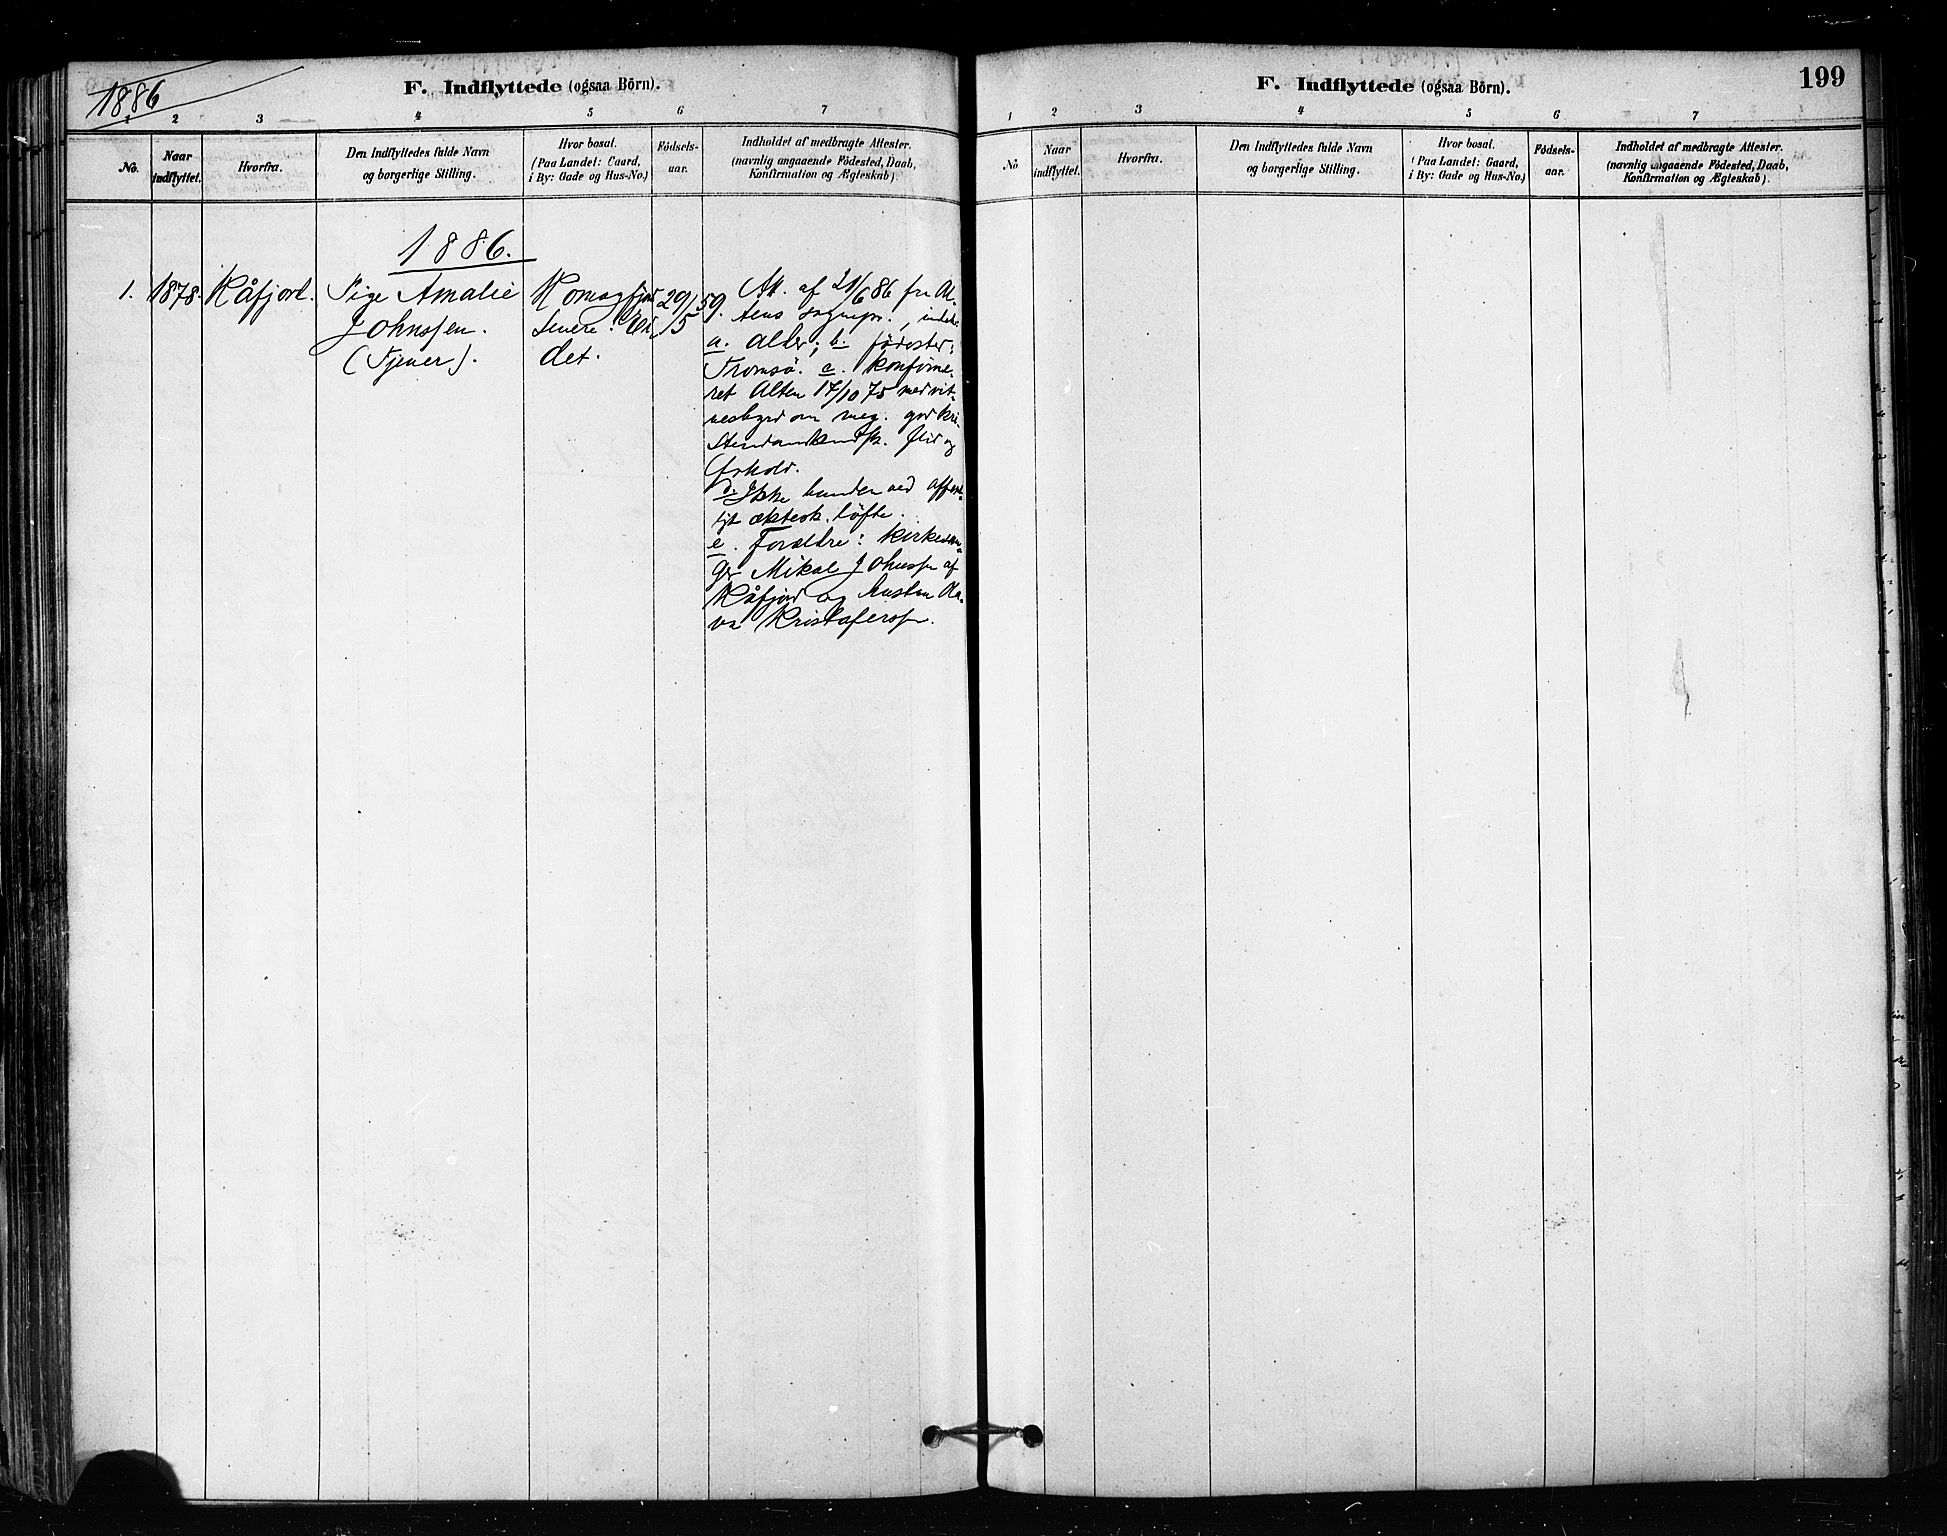 1886
F. Indflyttede (ogsaa Börn).
1 2 3 4 5 6 7
No.
Naar indflyttet.
Hvorfra.
Den Indflyttedes fulde Navn
og borgerlige Stilling.
Hvor bosat.
(Paa Landet: Gaard,
i By: Gade og Hus-No.)
Födsels-
aar.
Indholdet af medbragte Attester.
(navnlig angaaende Födested, Daab,
Konfirmation og Ægteskab).
1886.
1.
1878.
Kåfjord.
Pige Amalie
Johnssen.
(Tjener).
Komagfjord
senere: Ei-
det.
29/5 59.
At. af 21/6 86 fra Al-
tens sognepr.,
a. alder; b. födester:
Tromsö. c. konfirme-
ret Alten 17/10 75 med vit-
nesbyrd om meg. god kri-
stendomskundsk. flid og
forhold.
d. Ikke bunden ved offent-
ligt æktesk. löfte.
e. Forældre: kirkesan-
ger Mikal Johnssen af
Kåfjord og hustru
Kristofersen.
199
F. Indflyttede (ogsaa Börn).
1 2 3 4 5 6 7
No.
Naar
indflyttet.
Hvorfra.
Den Indflyttedes fulde Navn
og borgerlige Stilling.
Hvor bosat.
(Paa Landet: Gaard,
i By: Gade og Hus-No.)
Födsels-
aar.
Indholdet af medbragte Attester.
(navnlig angaaende Födested, Daab,
Konfirmation og Ægteskab).